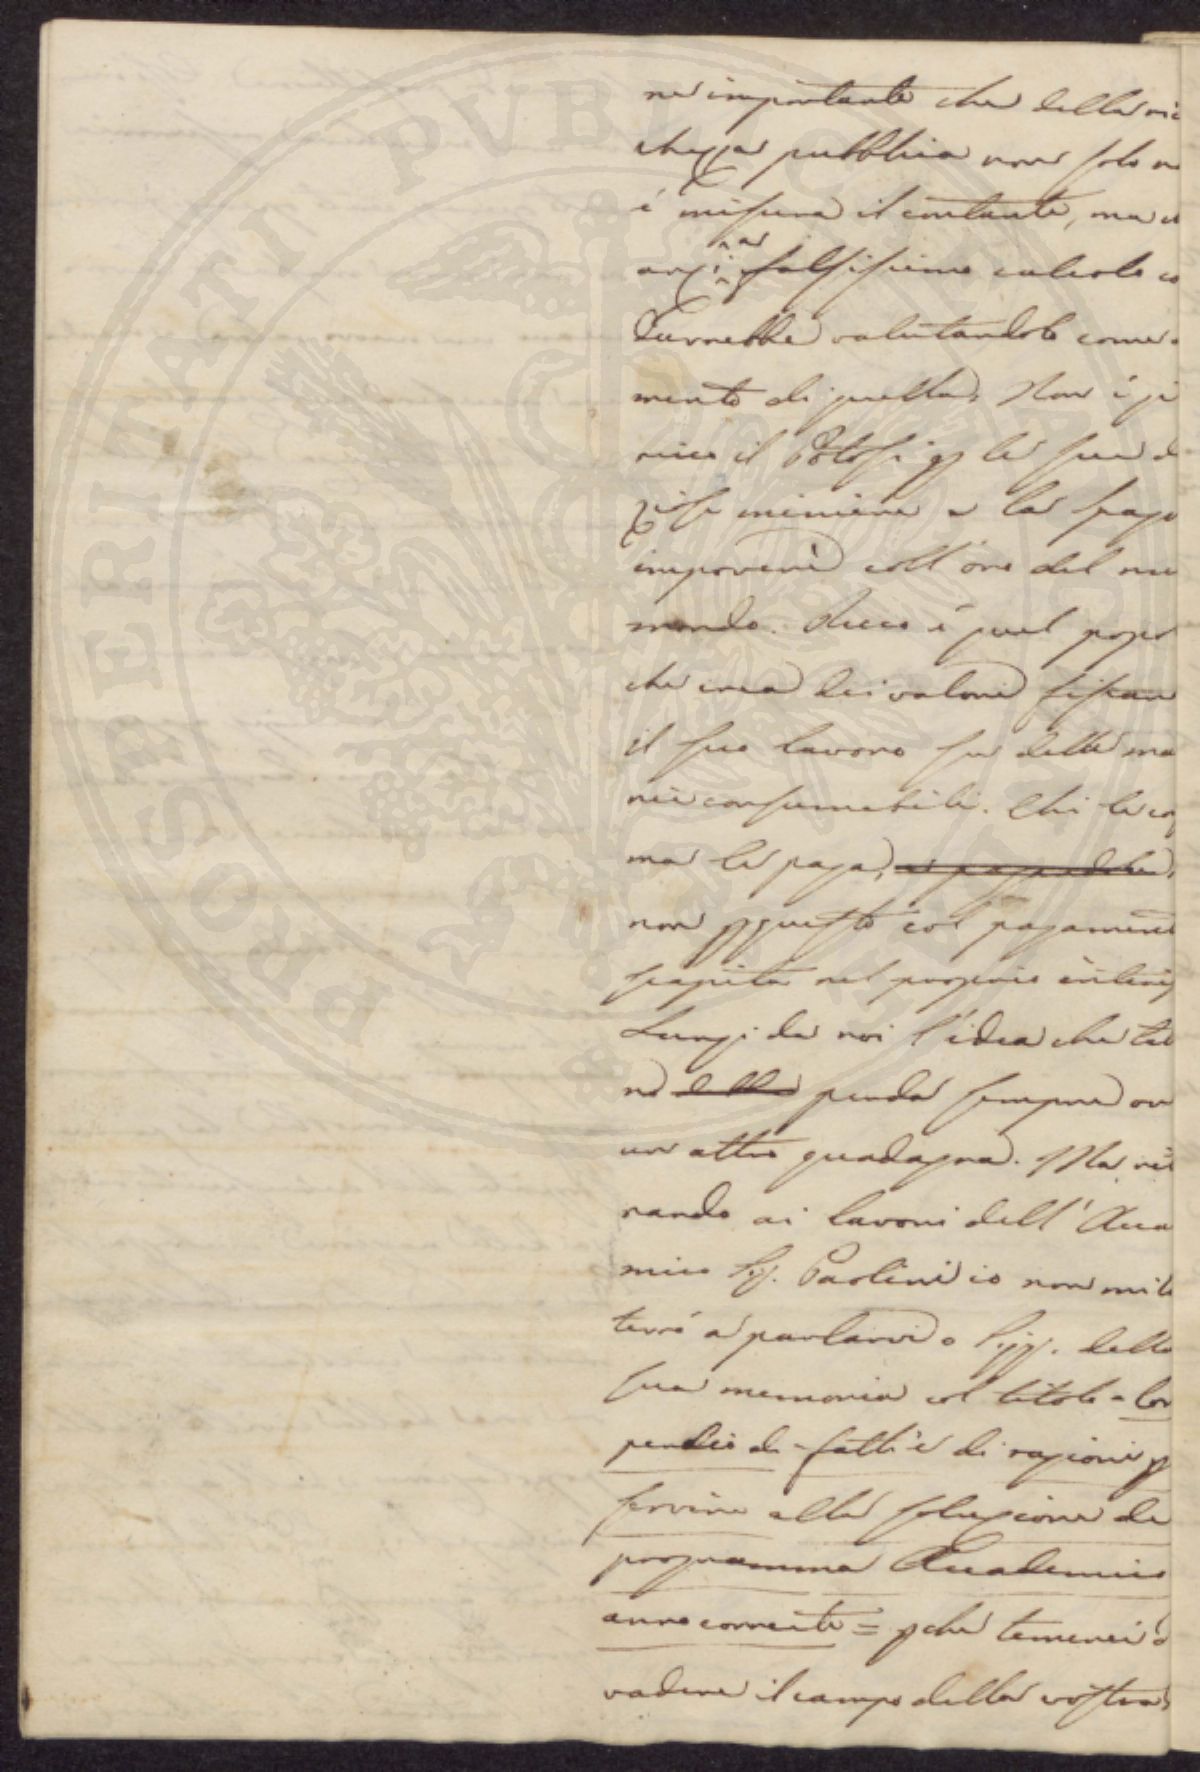 ne importante che della ric
chezza pubblica non solo n
é misura il contante, ma
anzi a falsissimo calcolo co
durrebbe valutandolo come
mento di quella. Non é
ricco il Potosi p le sue
ziose miniere e la Spag
impoverì coll'oro del nu
mondo. Ricco é quel popo
che crea dei valori fissan
il suo lavoro su delle ma
rie consumabili. Chi le co
ma le paga,
non p questo col pagament
scapita nel proprio interes
Lungi da noi l'idea che tal
no perda sempre ov
un altro guadagna. Ma rit
nando ai lavori dell'Acca
mico Sig. Paolini io non mi t
terró a parlarvi o Sigg. della
sua memoria col titolo = Com
pendio di fatti e di ragioni p
servire alla soluzione de
programma Accademico
anno corrente = pche temerei
vadere il campo della vostra
PROSPERITATI PVBLICAE